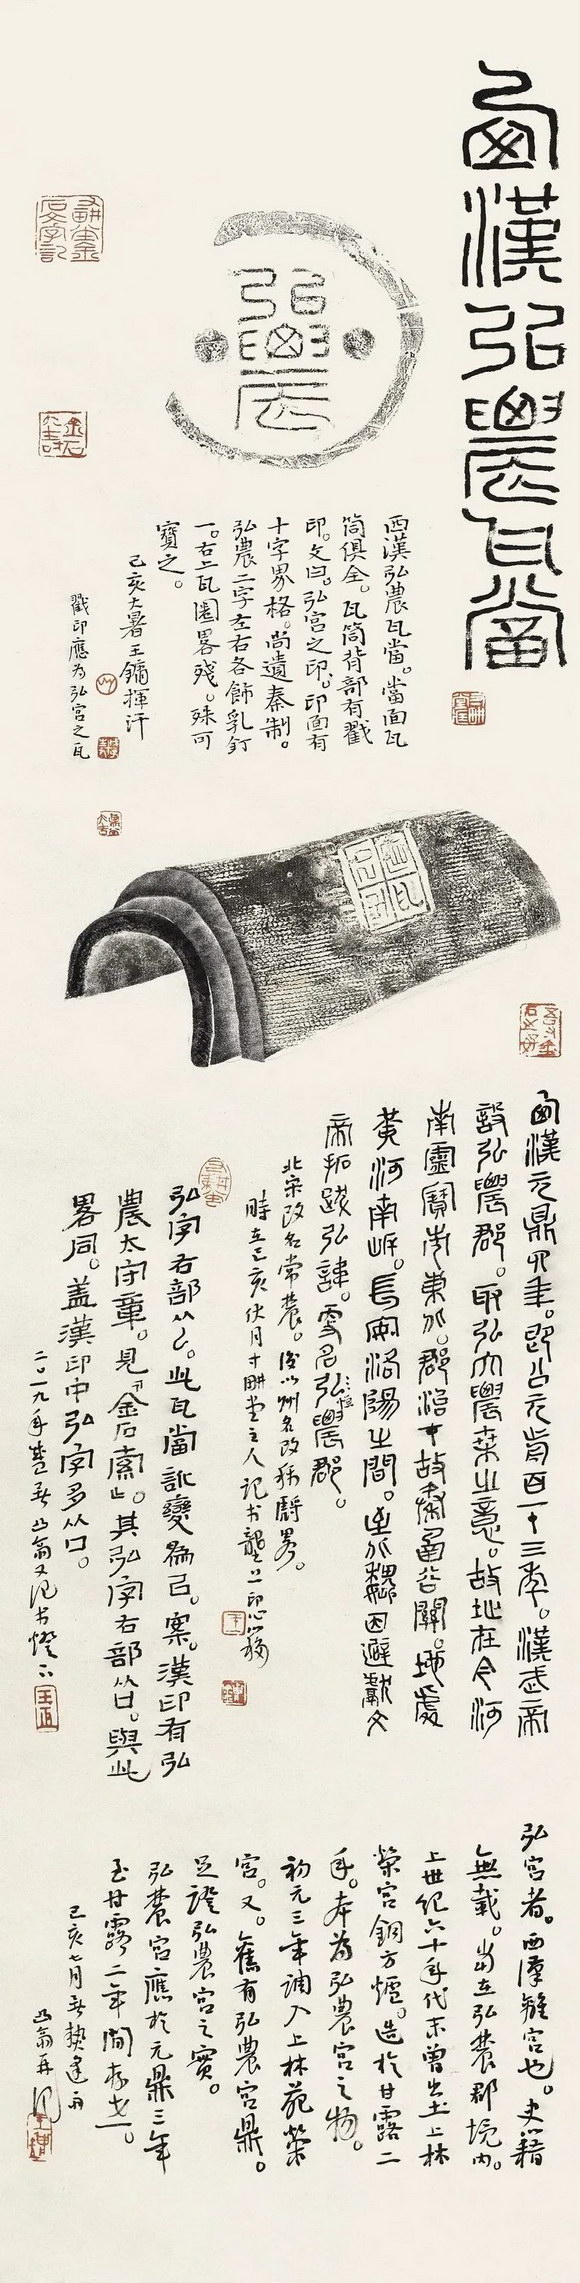 西漢弘農瓦當
弘農
西漢弘農瓦當。當面瓦
筒俱全。瓦筒背部有戳
印。文曰。弘宮之印。印面有
十字界格。尚遺秦制。
弘農二字左右各飾乳釘
一。右上瓦圈畧殘。殊可
寶之。
己亥大暑王鏞揮汗
戳印應为弘宮之瓦
西漢元鼎四年。即公元前百一十三年。漢武帝
設弘農郡。取弘大農桑之意。故地在今河
南靈寶市東北。郡治中故秦函谷關。地處
黃河南岸。長安洛陽之間。至北魏因避獻文
帝拓跋弘諱。更名恒農郡。
北宋改名常農。後以州名改稱
時在己亥伏月十畊堂主人記
弘字右部从厶。此瓦當訛變為㠯。案。漢印有弘
農太守章。見《金石索》。其弘字右部从口。與此
畧同。蓋漢印中弘字多从口。
二〇一九年 凸翁又記 燈下
弘宮者。西漢離宮也。史籍
無載。當在弘農郡境內。
上世纪六十年代末曾出土上林
榮宮銅方爐。造於甘露二
年。本为弘農宮之物。
初元三年調入上林苑榮
宮。又。舊有弘農宮鼎。
足證弘農宮之實。
弘農宮應於元鼎三年
至甘露二年間存世。
己亥七月
凸翁再記